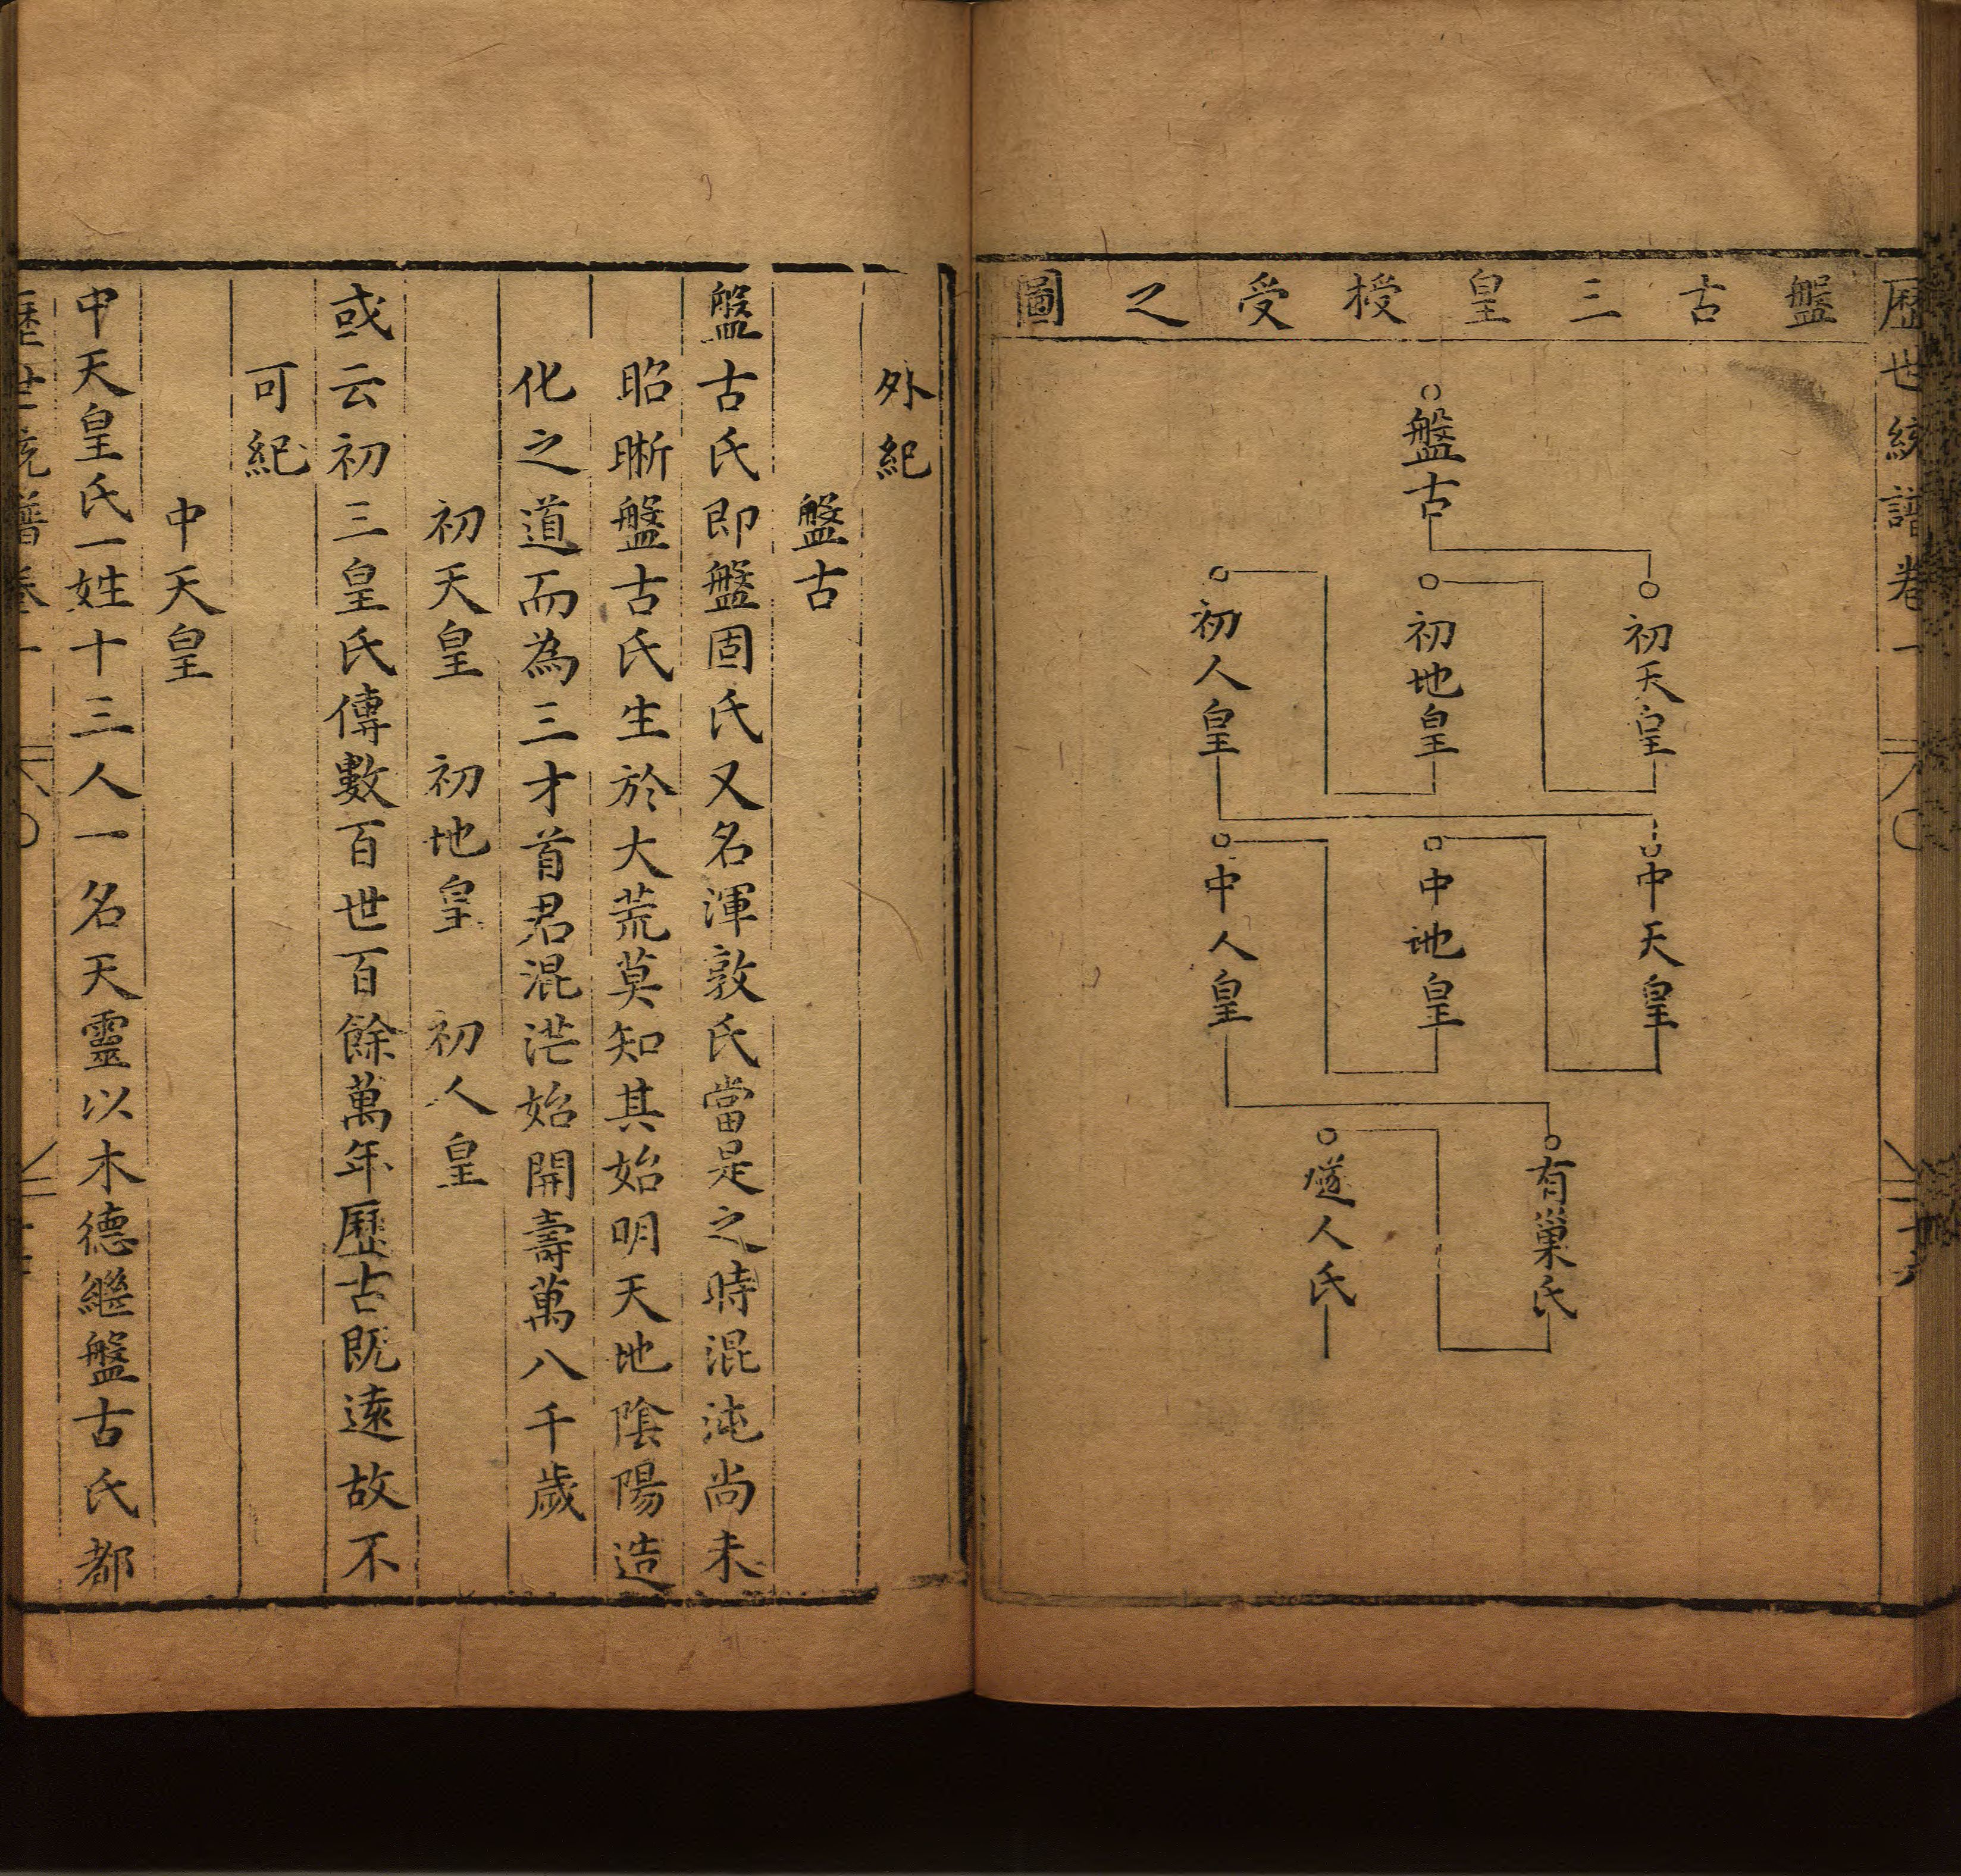 歷世統譜卷一
盤古三皇授受之圖
盤古
初天皇
初地皇
初人皇
中天皇
中地皇
中人皇
有巢氏
燧人氏
外紀
盤古
盤古氏即盤固氏又名渾敦氏當是之時混沌尚未
昭晣盤古氏生於大荒莫知其始明天地陰陽造
化之道而為三才首君混茫始開壽萬八千歲
初天皇 初地皇 初人皇
或云初三皇氏傳數百世百餘萬年歷古既遠故不
可紀
中天皇
中天皇氏一姓十三人一名天靈以木德繼盤古氏都
歷世統譜卷一